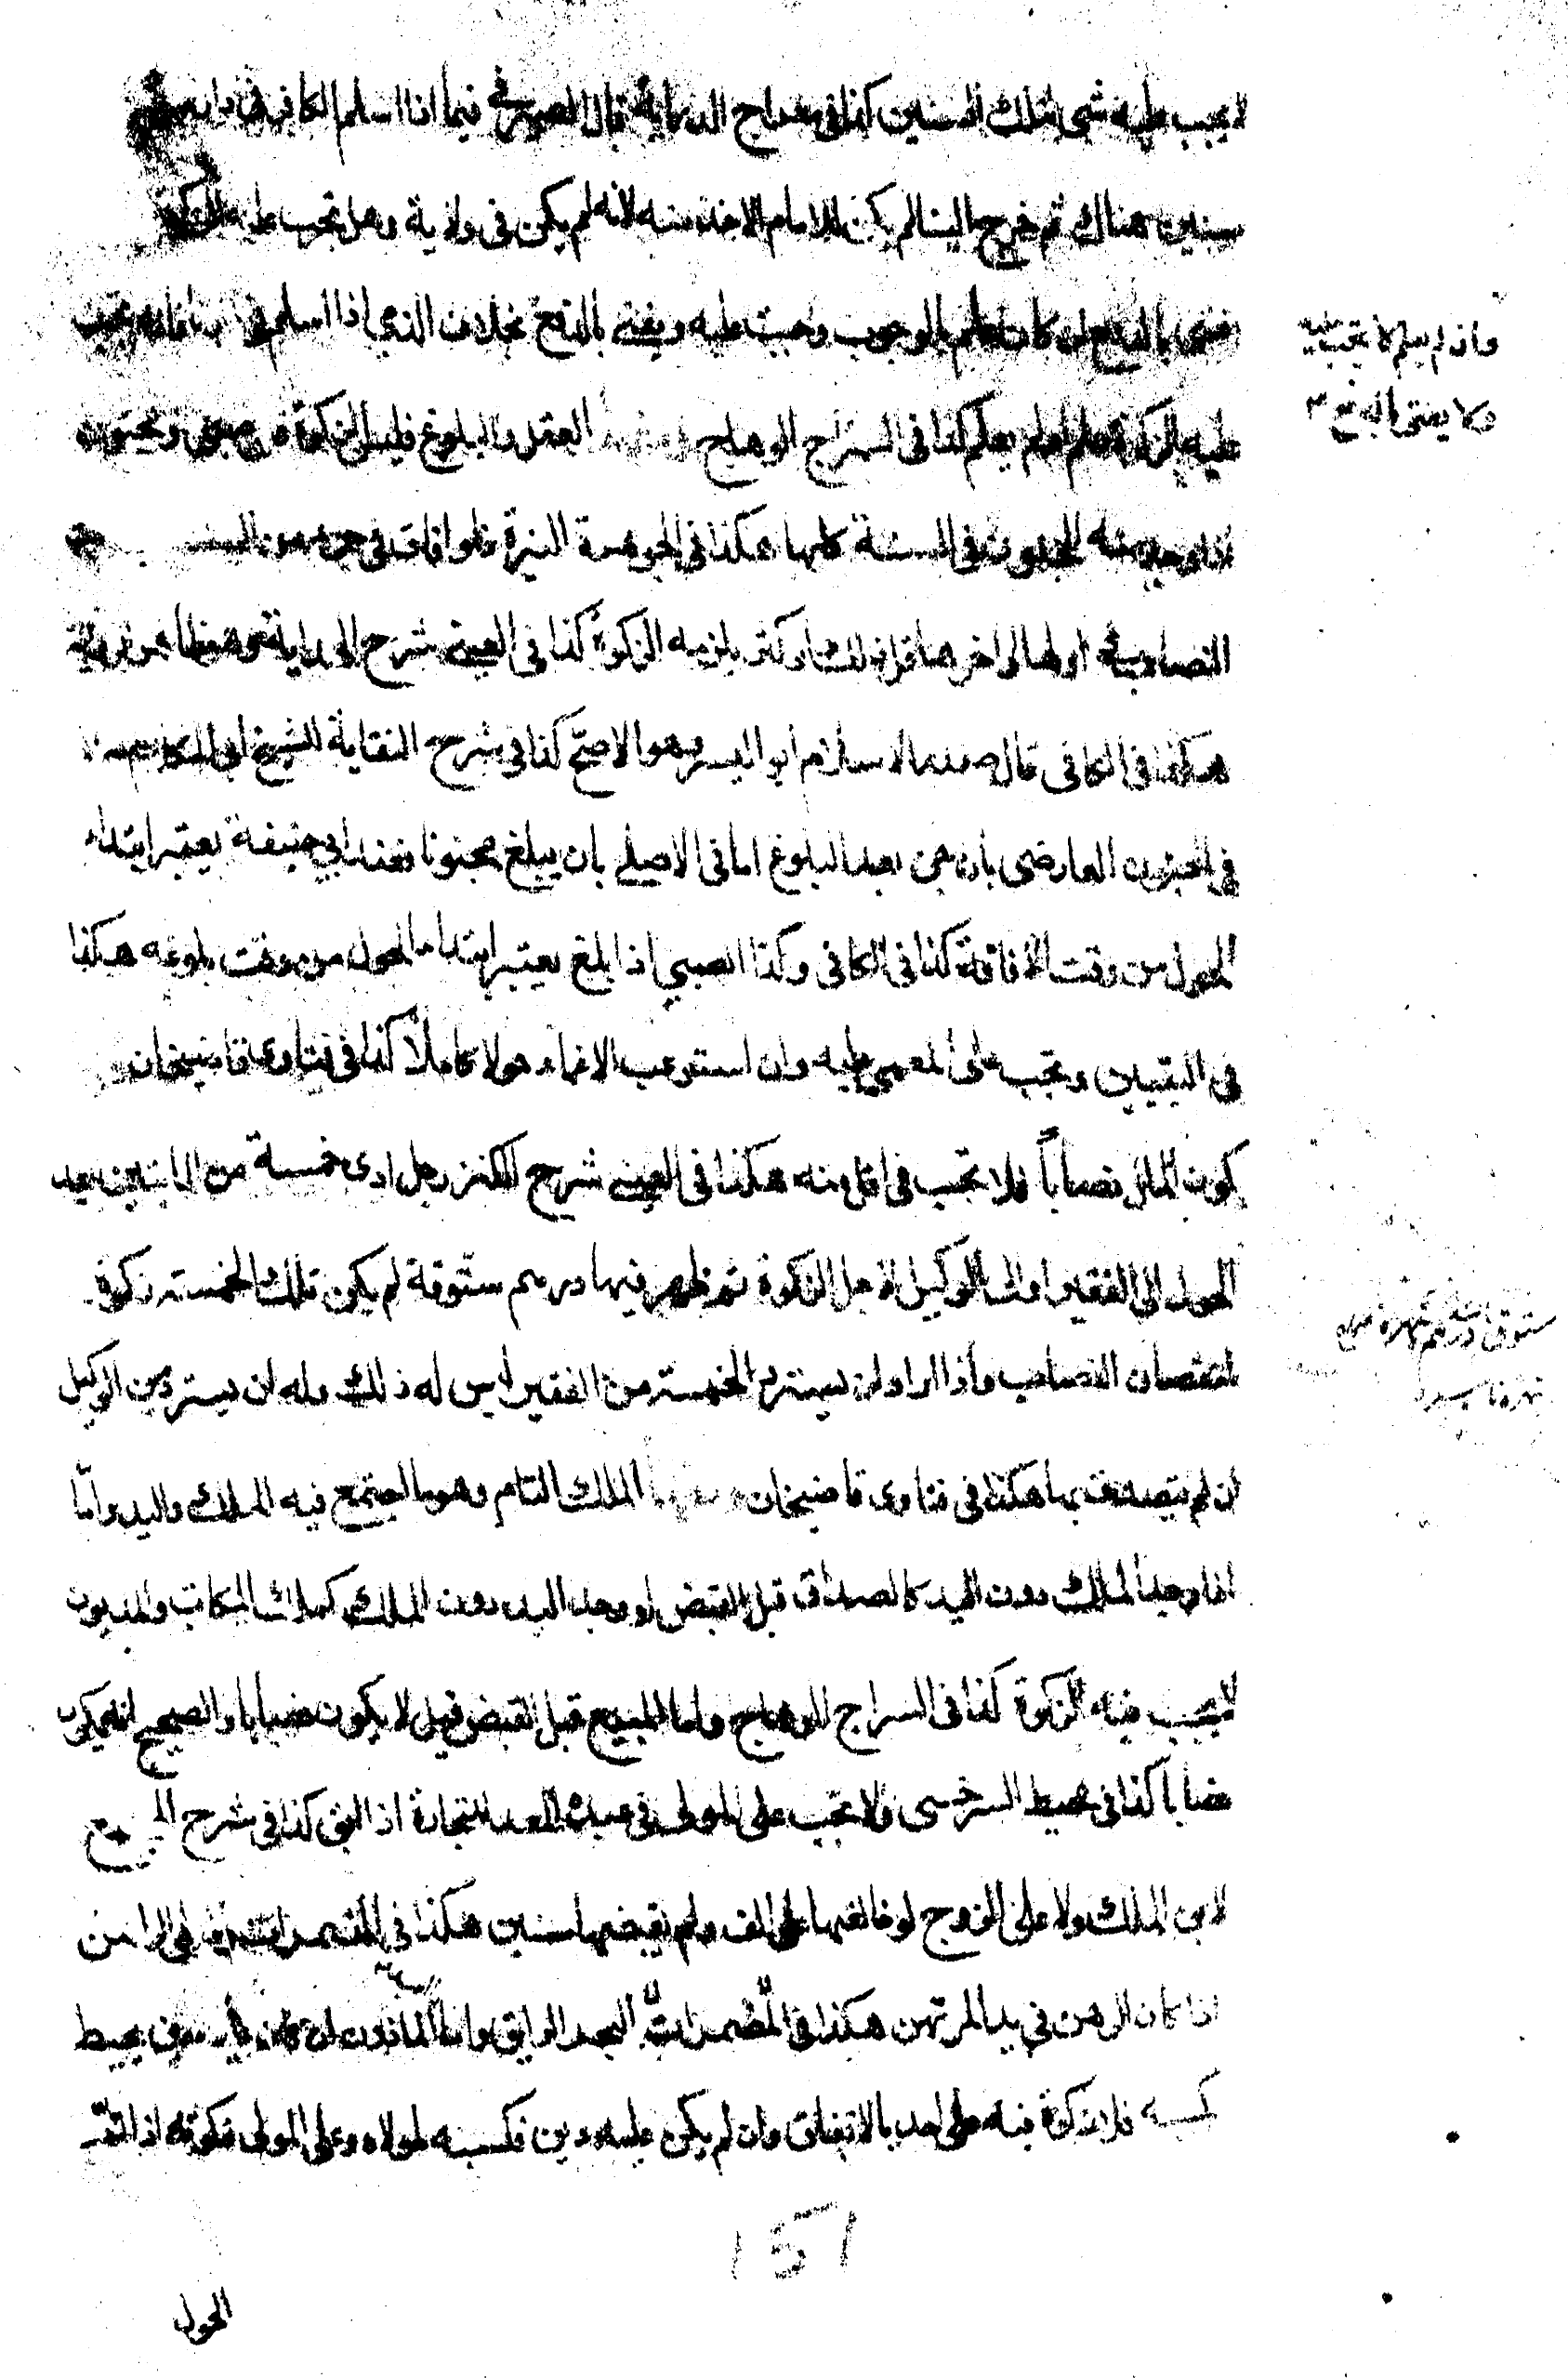 لا يجب عليه شئ لتلك السنين كذا فى معراج الدراية قال الصيرفى فيما اذا اسلم الكافر فى دار
سنين هناك ثم خرج الينا لم يكن للامام الاخذ منه لانه لم يكن فى ولاية وهل تجب عليه الزكوة
كان علم بالوجوب وجبت عليه ويفتى بالدفع بخلاف الذمى اذا اسلم فى تجب
واذ لم يعلم لا تجب عليه
ولا يفتى بالدفع
عليه الزكوة علم او لم يعلم كذا فى السراج الوهاج العقل والبلوغ فليس الزكوة على صبى ومجنون
اذا وجد منه الجنون فى السنة كلها هكذا فى الجوهرة النيرة فلو افاق فى جزء من السنة
النصاب فى اولها او اخرها قل ذلك او كثر يلزمه الزكوة كذا فى العينى شرح الهداية وهو ظاهر الرواية
هكذا فى الكافى قال صدر الاسلام ابو اليسر وهو الاصح كذا فى شرح النقاية للشيخ ابى المكارم
فى الجنون العارضى بان جن بعد البلوغ اما فى الاصلى بان يبلغ مجنونا فعند ابى حنيفة يعتبر ابتداء
الحول من وقت الافاقة كذا فى الكافى وكذا الصبى اذا بلغ يعتبر ابتداء الحول من وقت بلوغه هكذا
فى التبيين وتجب على المغمى عليه وان استوعب الاغماء حولا كاملا كذا فى فتاوى قاضيخان
كون المال نصاباً فلا تجب فى اقل منه هكذا فى العينى شرح الكنز رجل ادى خمسة من المايتين بعد
الحول الى الفقير او الى الوكيل لاجل الزكوة ثم ظهر فيها درهم ستوقة لم يكن تلك الخمسة زكوة
لنقصان النصاب واذا اراد ان يسترد الخمسة من الفقير ليس له ذلك وله ان يسترد من الوكيل
ان لم يتصدق بها هكذا فى فتاوى قاضيخان الملك التام وهو ما اجتمع فيه الملك واليد واما
اذا وجد الملك دون اليد كالصداق قبل القبض او وجد اليد دون الملك كملك المكاتب والمديون
لا يجب فيه الزكوة كذا فى السراج الوهاج واما المبيع قبل القبض قيل لا يكون نصابا والصحيح انه يكون
نصابا كذا فى محيط السرخسى ولا تجب على المولى فى عبده المعد للتجارة اذا ابق كذا فى شرح المجمع
لابن الملك ولا على الزوج لو خالعها على الف ولم يقبضها سنين هكذا فى المضمرات على الراهن
اذا كان الرهن فى يد المرتهن هكذا فى البحر الرايق واما الماذون ان كان عليه دين يحيط
كسبه فلا زكوة فيه على احد بالاتفاق وان لم يكن عليه دين فكسبه لمولاه وعلى المولى زكوته اذا تم
151
الحول